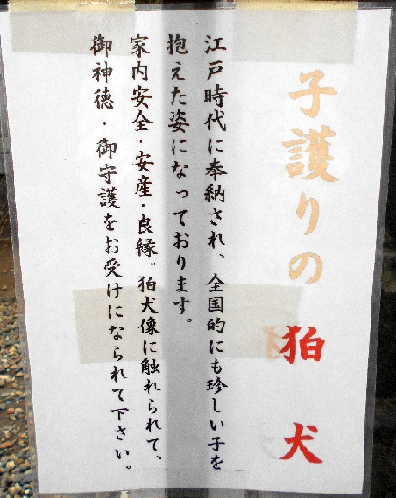 子護りの狛犬
江戸時代に奉納され、全国的にも珍しい子を
抱えた姿になっております。
家内安全・安産・良縁。狛犬像に触れられて、
御神徳・御守護をお受けになられて下さい。